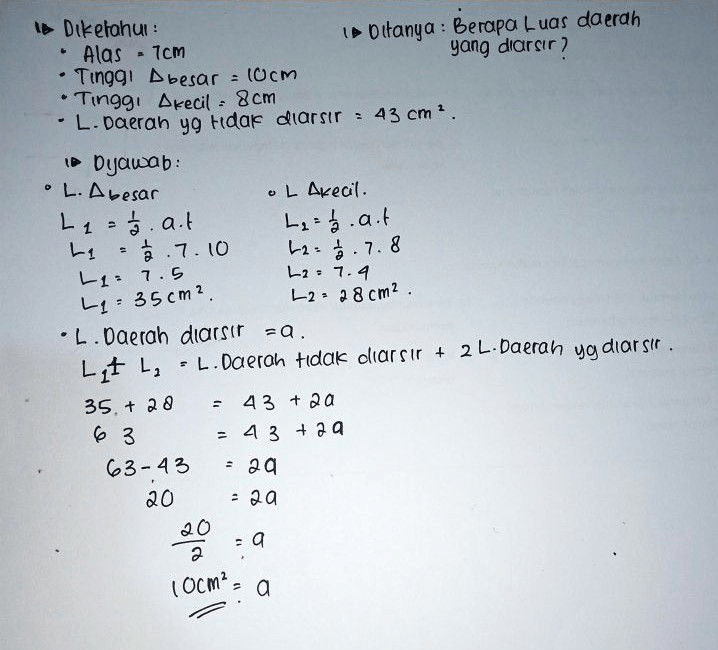 Diketahui :
• Alas = 7cm
• Tinggi Δbesar = 10cm
• Tinggi Δkecil = 8cm
- L. Daerah yg tidak diarsir = 43 cm².
Ditanya : Berapa Luas daerah
yang diarsir?
Dijawab :
• L. Δbesar
L1 = 1/2 . a.t
L1 = 1/2 . 7 . 10
L1 = 7 . 5
L1 = 35cm².
• L Δkecil.
L2 = 1/2 . a.t
L2 = 1/2 . 7. 8
L2 = 7.4
L2 = 28cm².
• L. Daerah diarsir = a.
L1 + L2 = L. Daerah tidak diarsir + 2 L. Daerah yg diarsir.
35 + 28 = 43 + 2a
63 = 43 + 2a
63-43 = 2a
20 = 2a
20/2 = a
10cm² = a